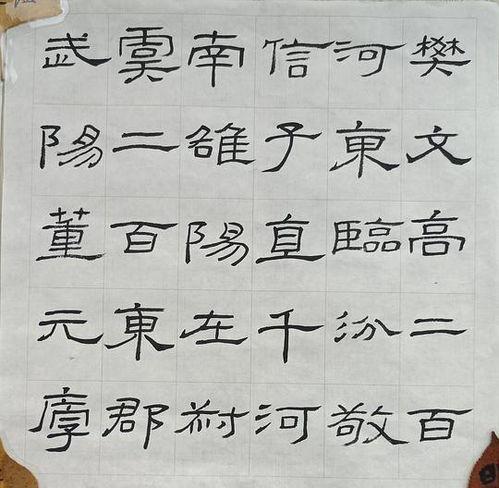 樊文高二百
河東臨汾敬
信子直千河
南雒陽左叔
虞二百東郡
武陽董元厚